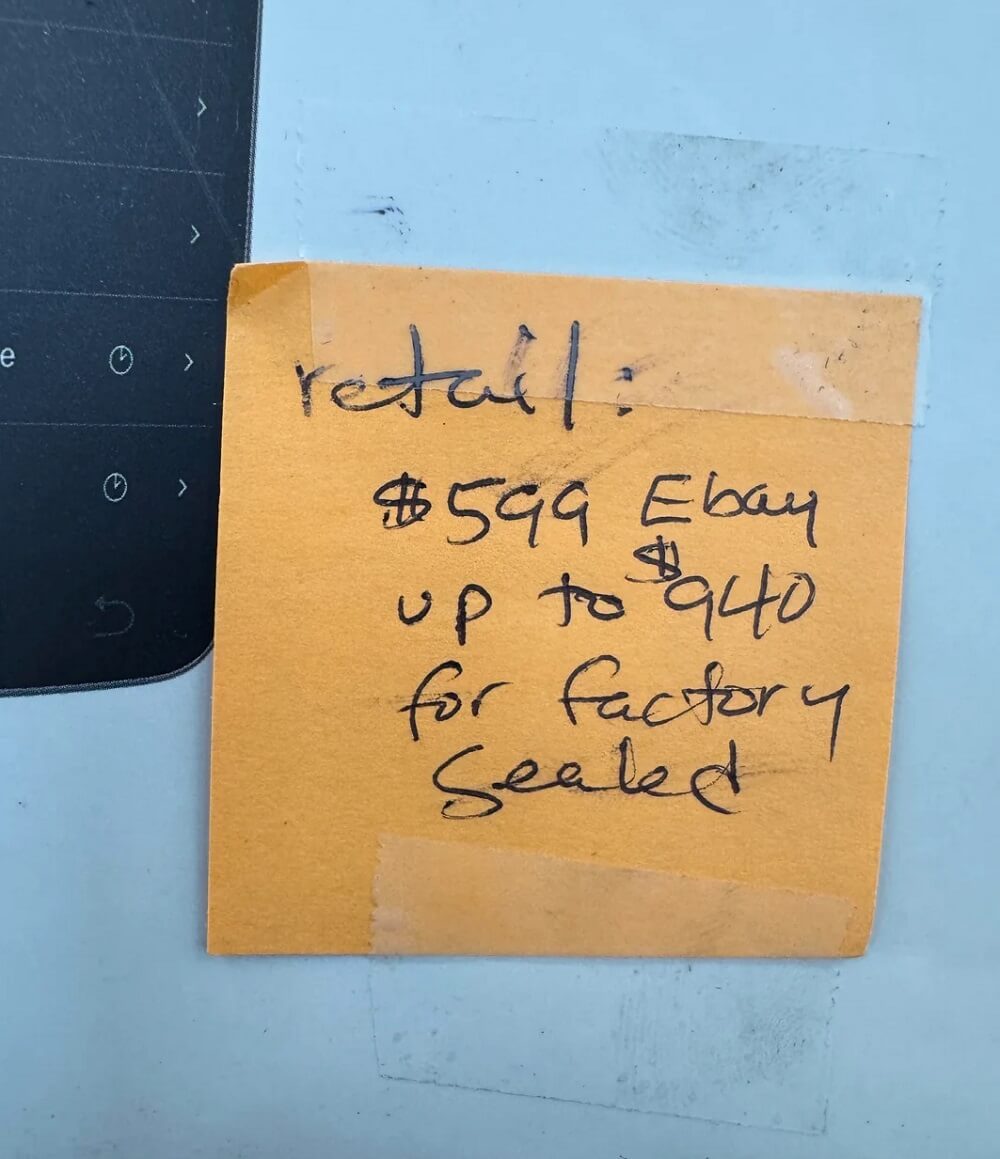 e
retail:
$599 Ebay
up to $940
for factory
sealed